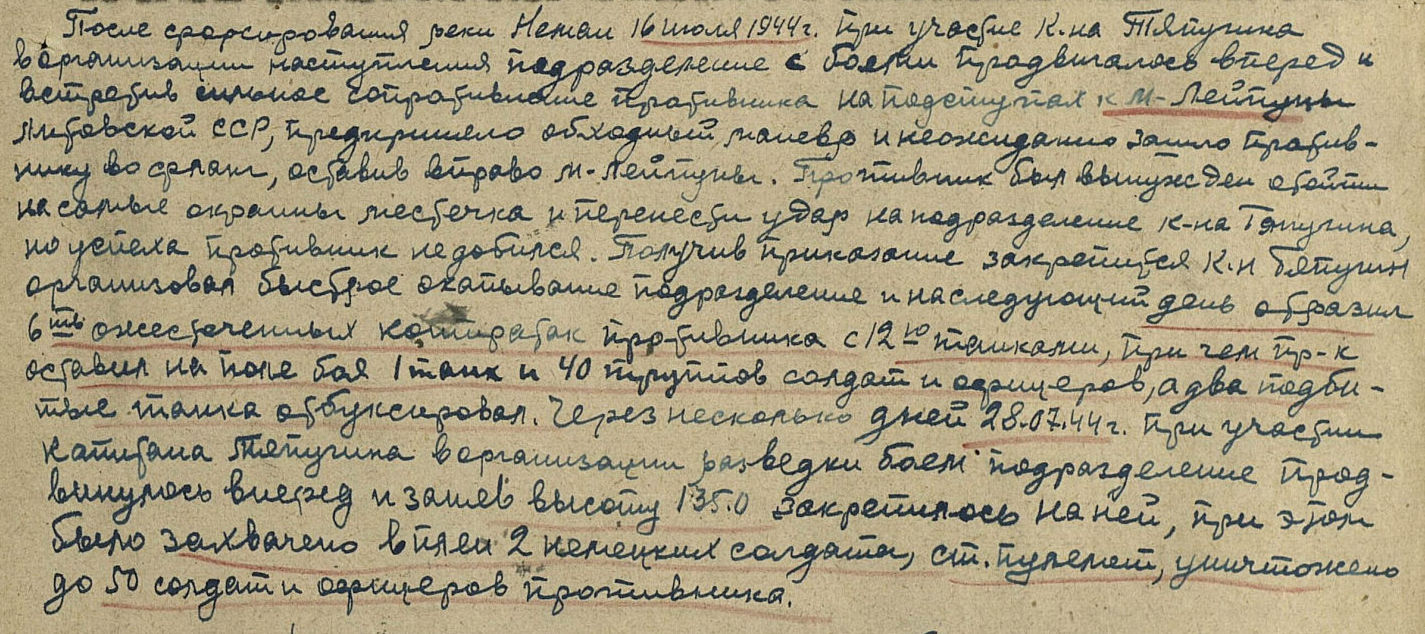 После сфорсирования реки Неман 16 июля 1944 г. При участие К-на Тяпугина
в организации наступления подразделение с боями продвигалось вперед и
встретив сильное сопротивление противника на подступах к м-Лейпуны
Литовской ССР, предприняло обходный маневр и неожиданно зашло против-
нику во фланг, оставив вправо м-Лейпуны. Противник был вынужден отойти
на самые окраины местечка и перенести удар на подразделение к-на Тяпугина,
но успеха противник не добился. Получив приказание закрепится К-н Тяпугин
организовал быстрое окапывание подразделение и на следующий день отразил
6ть ожесточенных контратак противника с 12ю танками, при чем пр-к
оставил на поле боя 1 танк и 40 труппов солдат и офицеров, а два подби-
тые танка отбуксировал. Через несколько дней 28.07.44 г. при участии
капитана Тяпугина в организации разведки боем подразделение прод-
винулось вперед и заняв высоту 135.0 закрепилось на ней, при этом
было захвачено в плен 2 немецких солдата, ст. пулемет, уничтожено
до 50 солдат и офицеров противника.